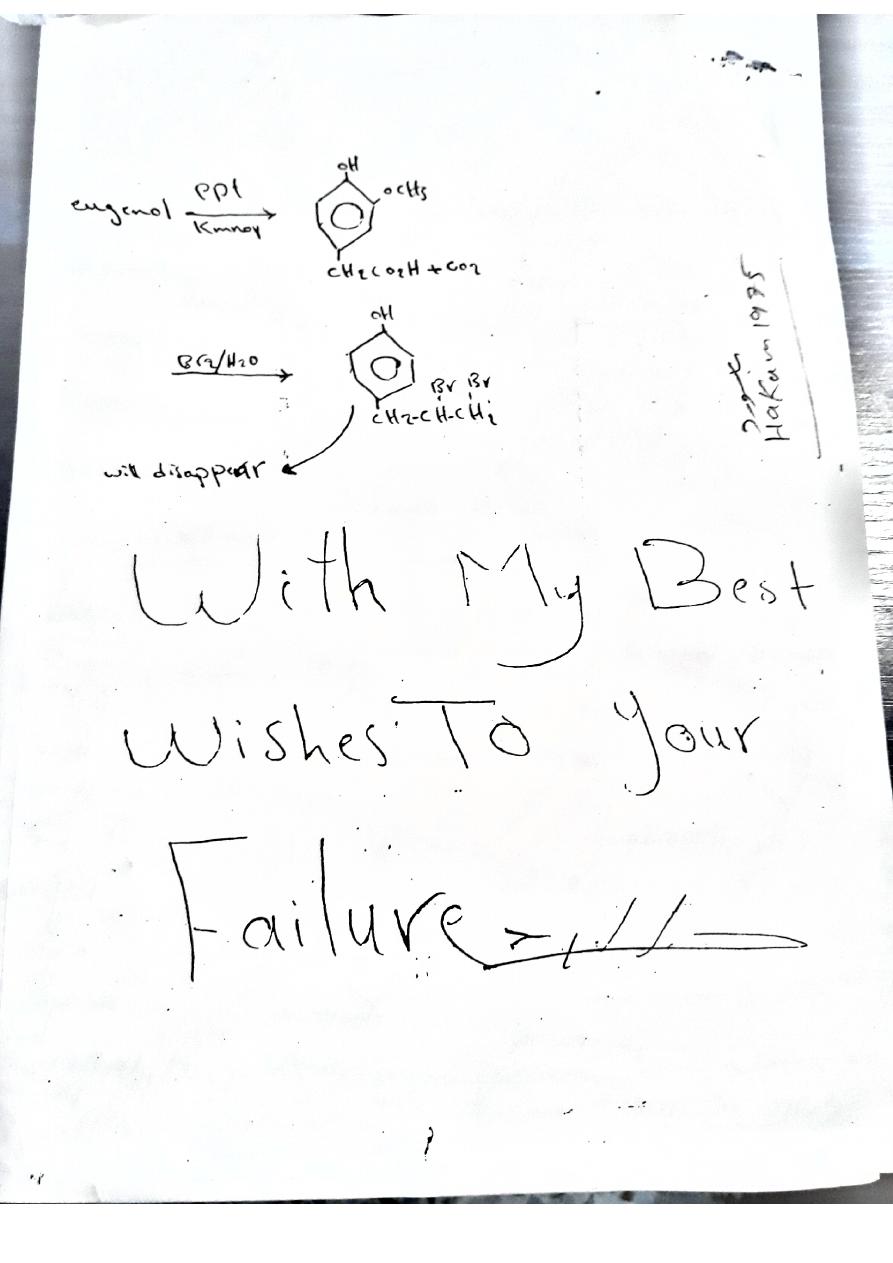 eugenol PPt
Kmno4
OH
OCH3
CH2CO2H + CO2
Br2/H2O
OH
Br Br
CH2-CH-CH2
will disappear
Hakam 1995
With My Best
Wishes To Your
Failure